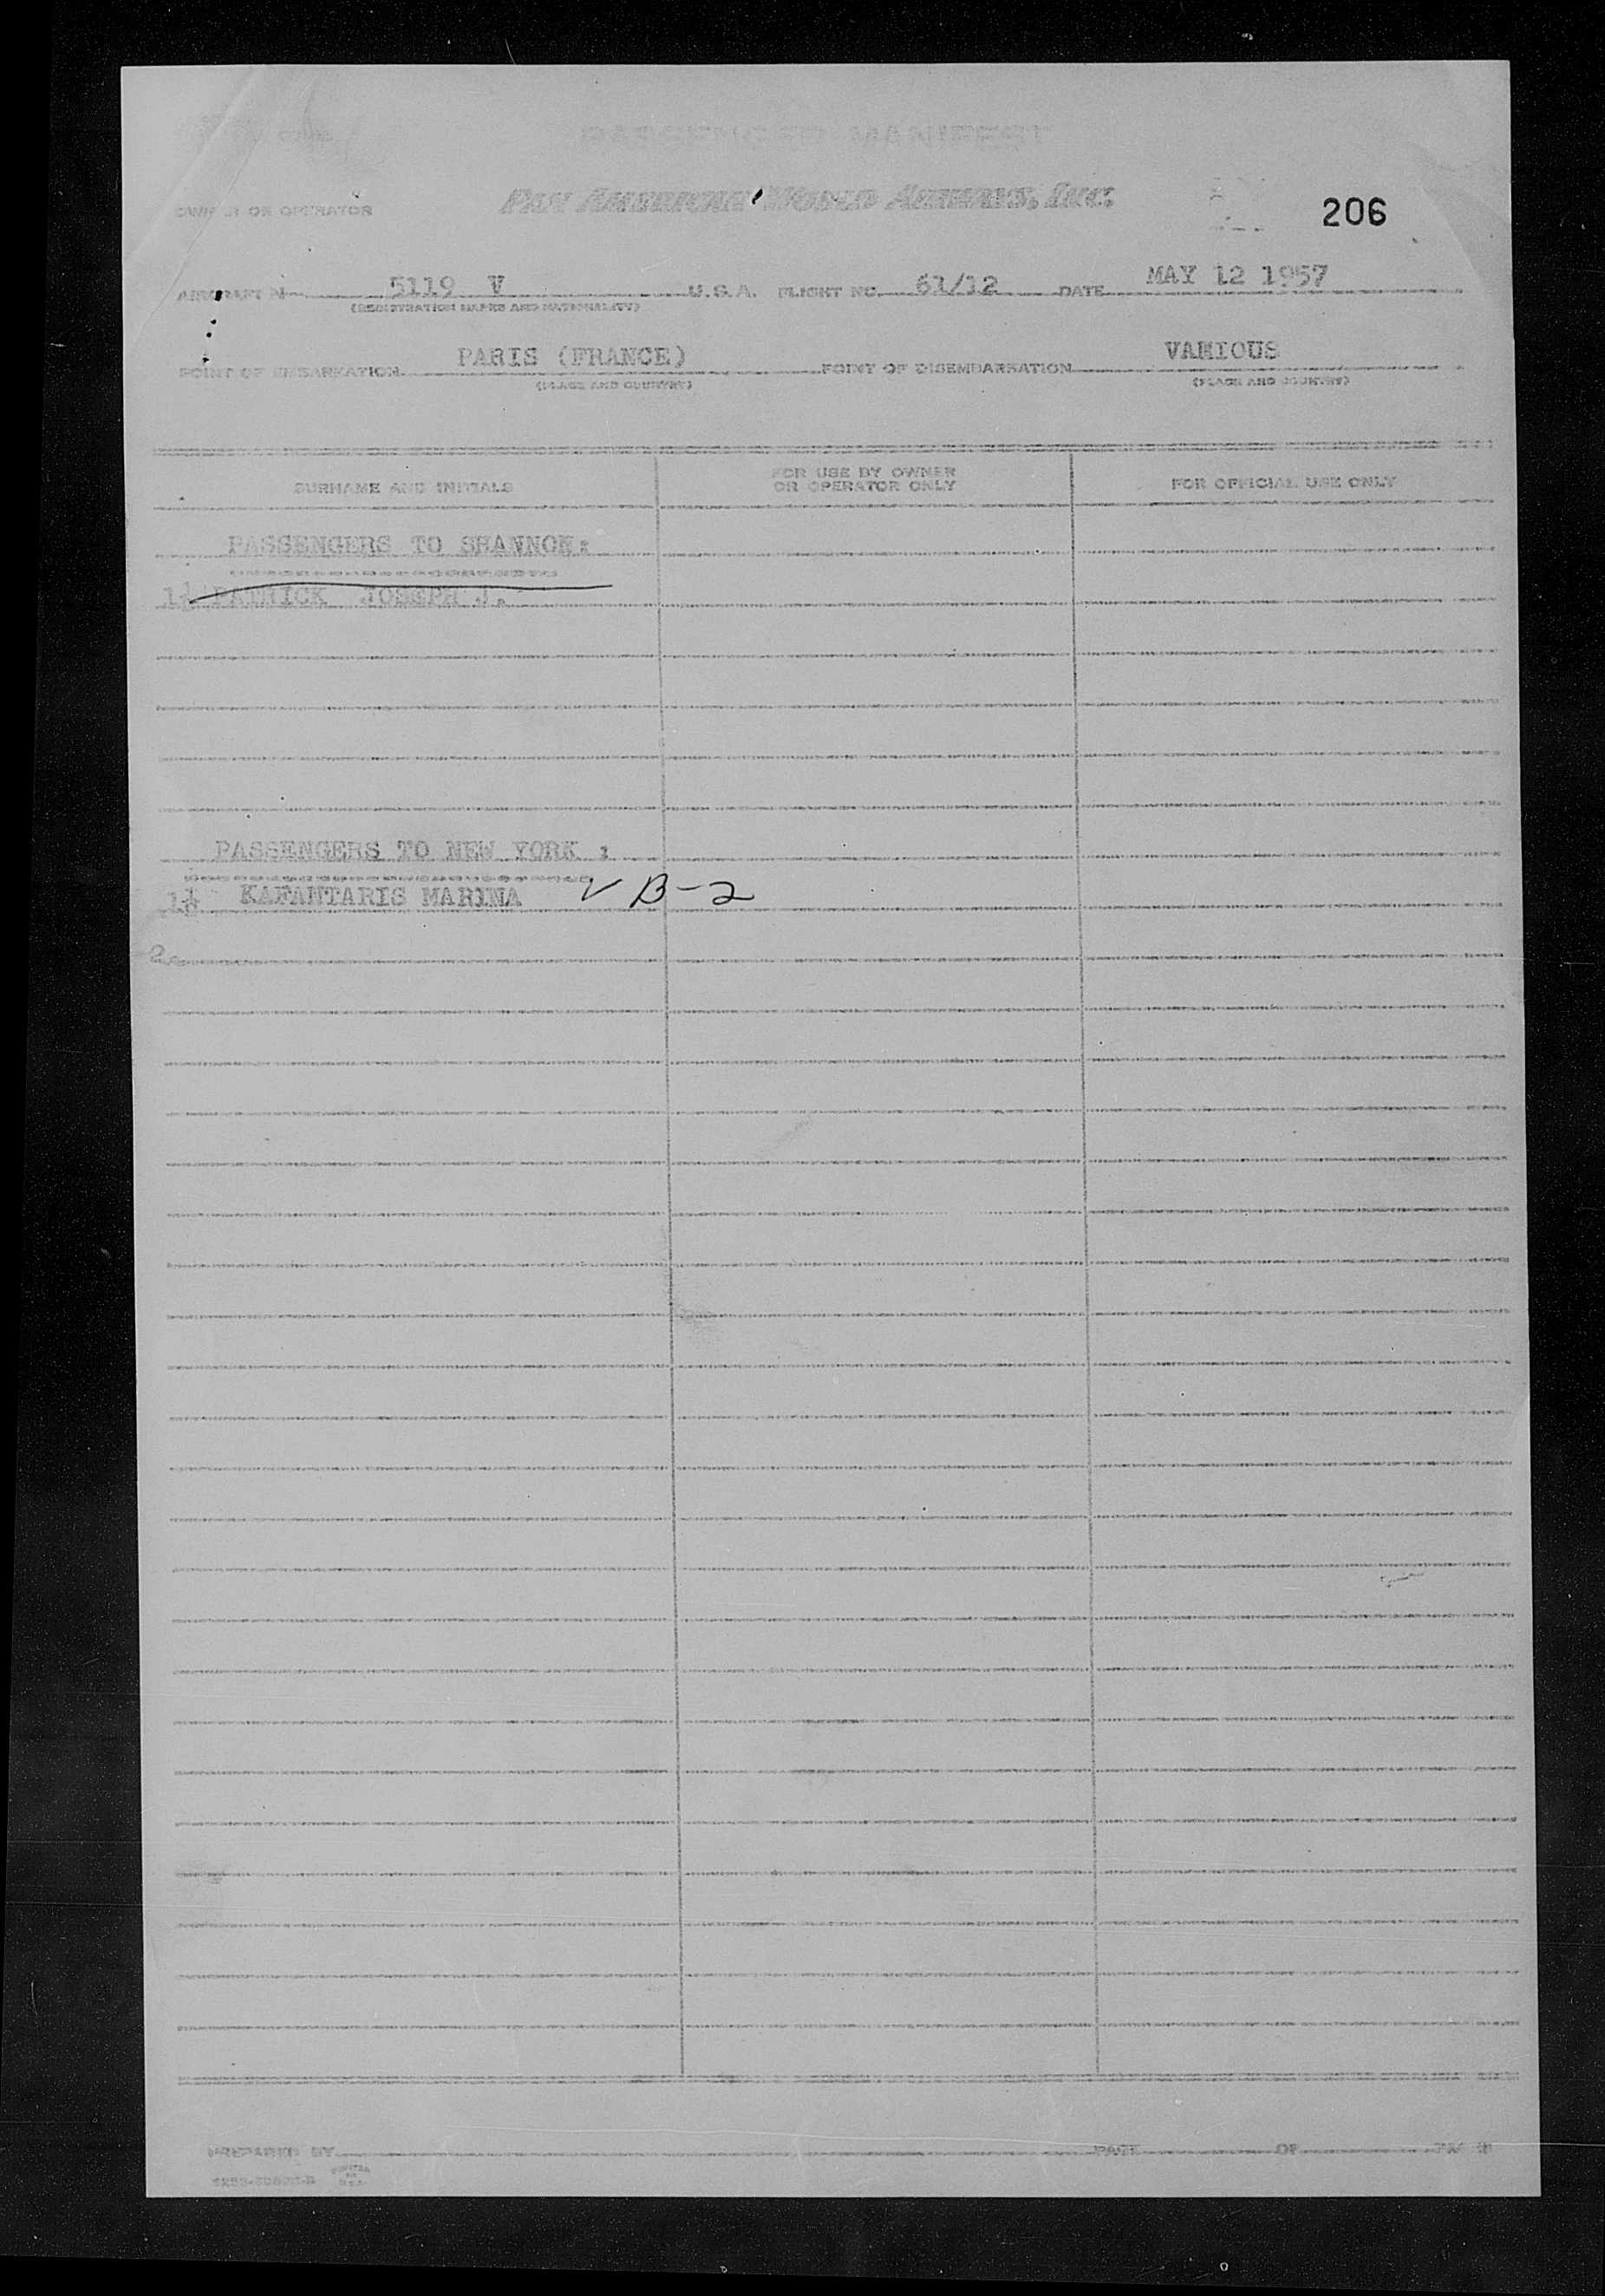 PASSENGER MANIFEST
OWNER OR OPERATOR PAN AMERICAN WORLD AIRWAYS, INC. 206
AIRCRAFT N 5119 V U.S.A. FLIGHT NO. 61/12 DATE MAY 12 1957
(REGISTRATION MARKS AND NATIONALITY)
POINT OF EMBARKATION PARIS (FRANCE) POINT OF DISEMBARKATION VARIOUS
(PLACE AND COUNTRY) (PLACE AND COUNTRY)
SURNAME AND INITIALS FOR USE BY OWNER OR OPERATOR ONLY FOR OFFICIAL USE ONLY
PASSENGERS TO SHANNON:
1 PATRICK JOSEPH J.
PASSENGERS TO NEW YORK :
1 KAFANTARIS MARINA V B-2
2
PREPARED BY PAGE OF